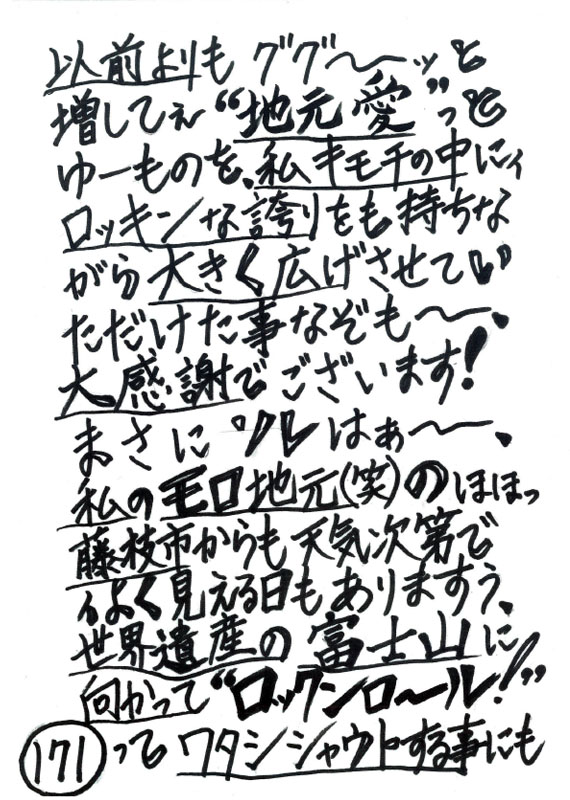 以前よりも ググ〜〜ッと
増してぇ“地元愛”っと
ゆーものを、私キモチの中にィ
ロッキンな誇りをも持ちな
がら大きく広げさせてい
ただけた事なぞも〜〜、
大感謝でございます！
まさに ソレはぁ〜〜、
私のモロ地元(笑)のほほっ
藤枝市からも天気次第で
ィよく見える日もありますぅ、
世界遺産の富士山に
向かって“ロックンロ〜ル！”
171 って ワタシシャウトする事にも